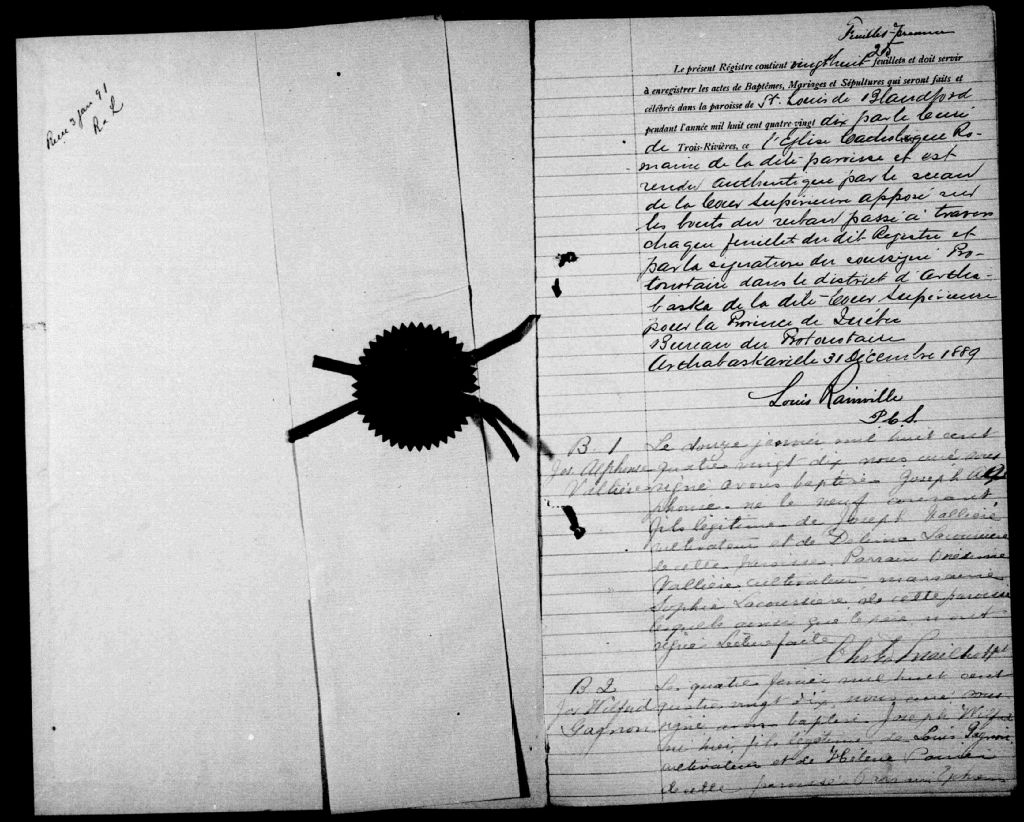 Recu 3 jan 91
R. L
Feuillet premier
Le présent Régistre contient vingthuit 28 feuillets et doit servir
à enregistrer les actes de Baptêmes, Mariages et Sépultures qui seront faits et
célébrés dans la paroisse de St. Louis de Blandford
pendant l'année mil huit cent quatre-vingt dix par le Curé
de Trois-Rivières, ce l'Eglise Catholique Ro-
maine de la dite paroisse et est
rendu authentique par le sceau
de la Cour Supérieure apposé sur
les bouts du ruban passé à travers
chaque feuillet du dit Régistre et
par la signature du soussigné Pro-
tonotaire dans le district d'Artha-
baska de la dite Cour Supérieure
pour la Province de Québec
Bureau du Protonotaire
Arthabaskaville 31 Décembre 1889
Louis Rainville
P.C.S.
B. 1 Le douze janvier mil huit cent
Jos. Alphonse quatre vingt dix nous curé sous
Vallière signé avons baptisé Joseph Al
phonse né le neuf courant,
fils légitime de Joseph Vallière
cultivateur et de Delvina Lacoursière
de cette paroisse. Parrain Onésime
Vallière cultivateur marraine
Sophie Lacoursière de cette paroisse
lesquels ainsi que le père n'ont
signé Lecture faite
B. 2 Le quatre février mil huit cent
Jos Wilfrid quatre vingt dix, nous curé sous
Gagnon signé avons baptisé Joseph Wilfrid
né hier, fils légitime de Louis Gagnon
cultivateur et de Hélène Poirier
de cette paroisse